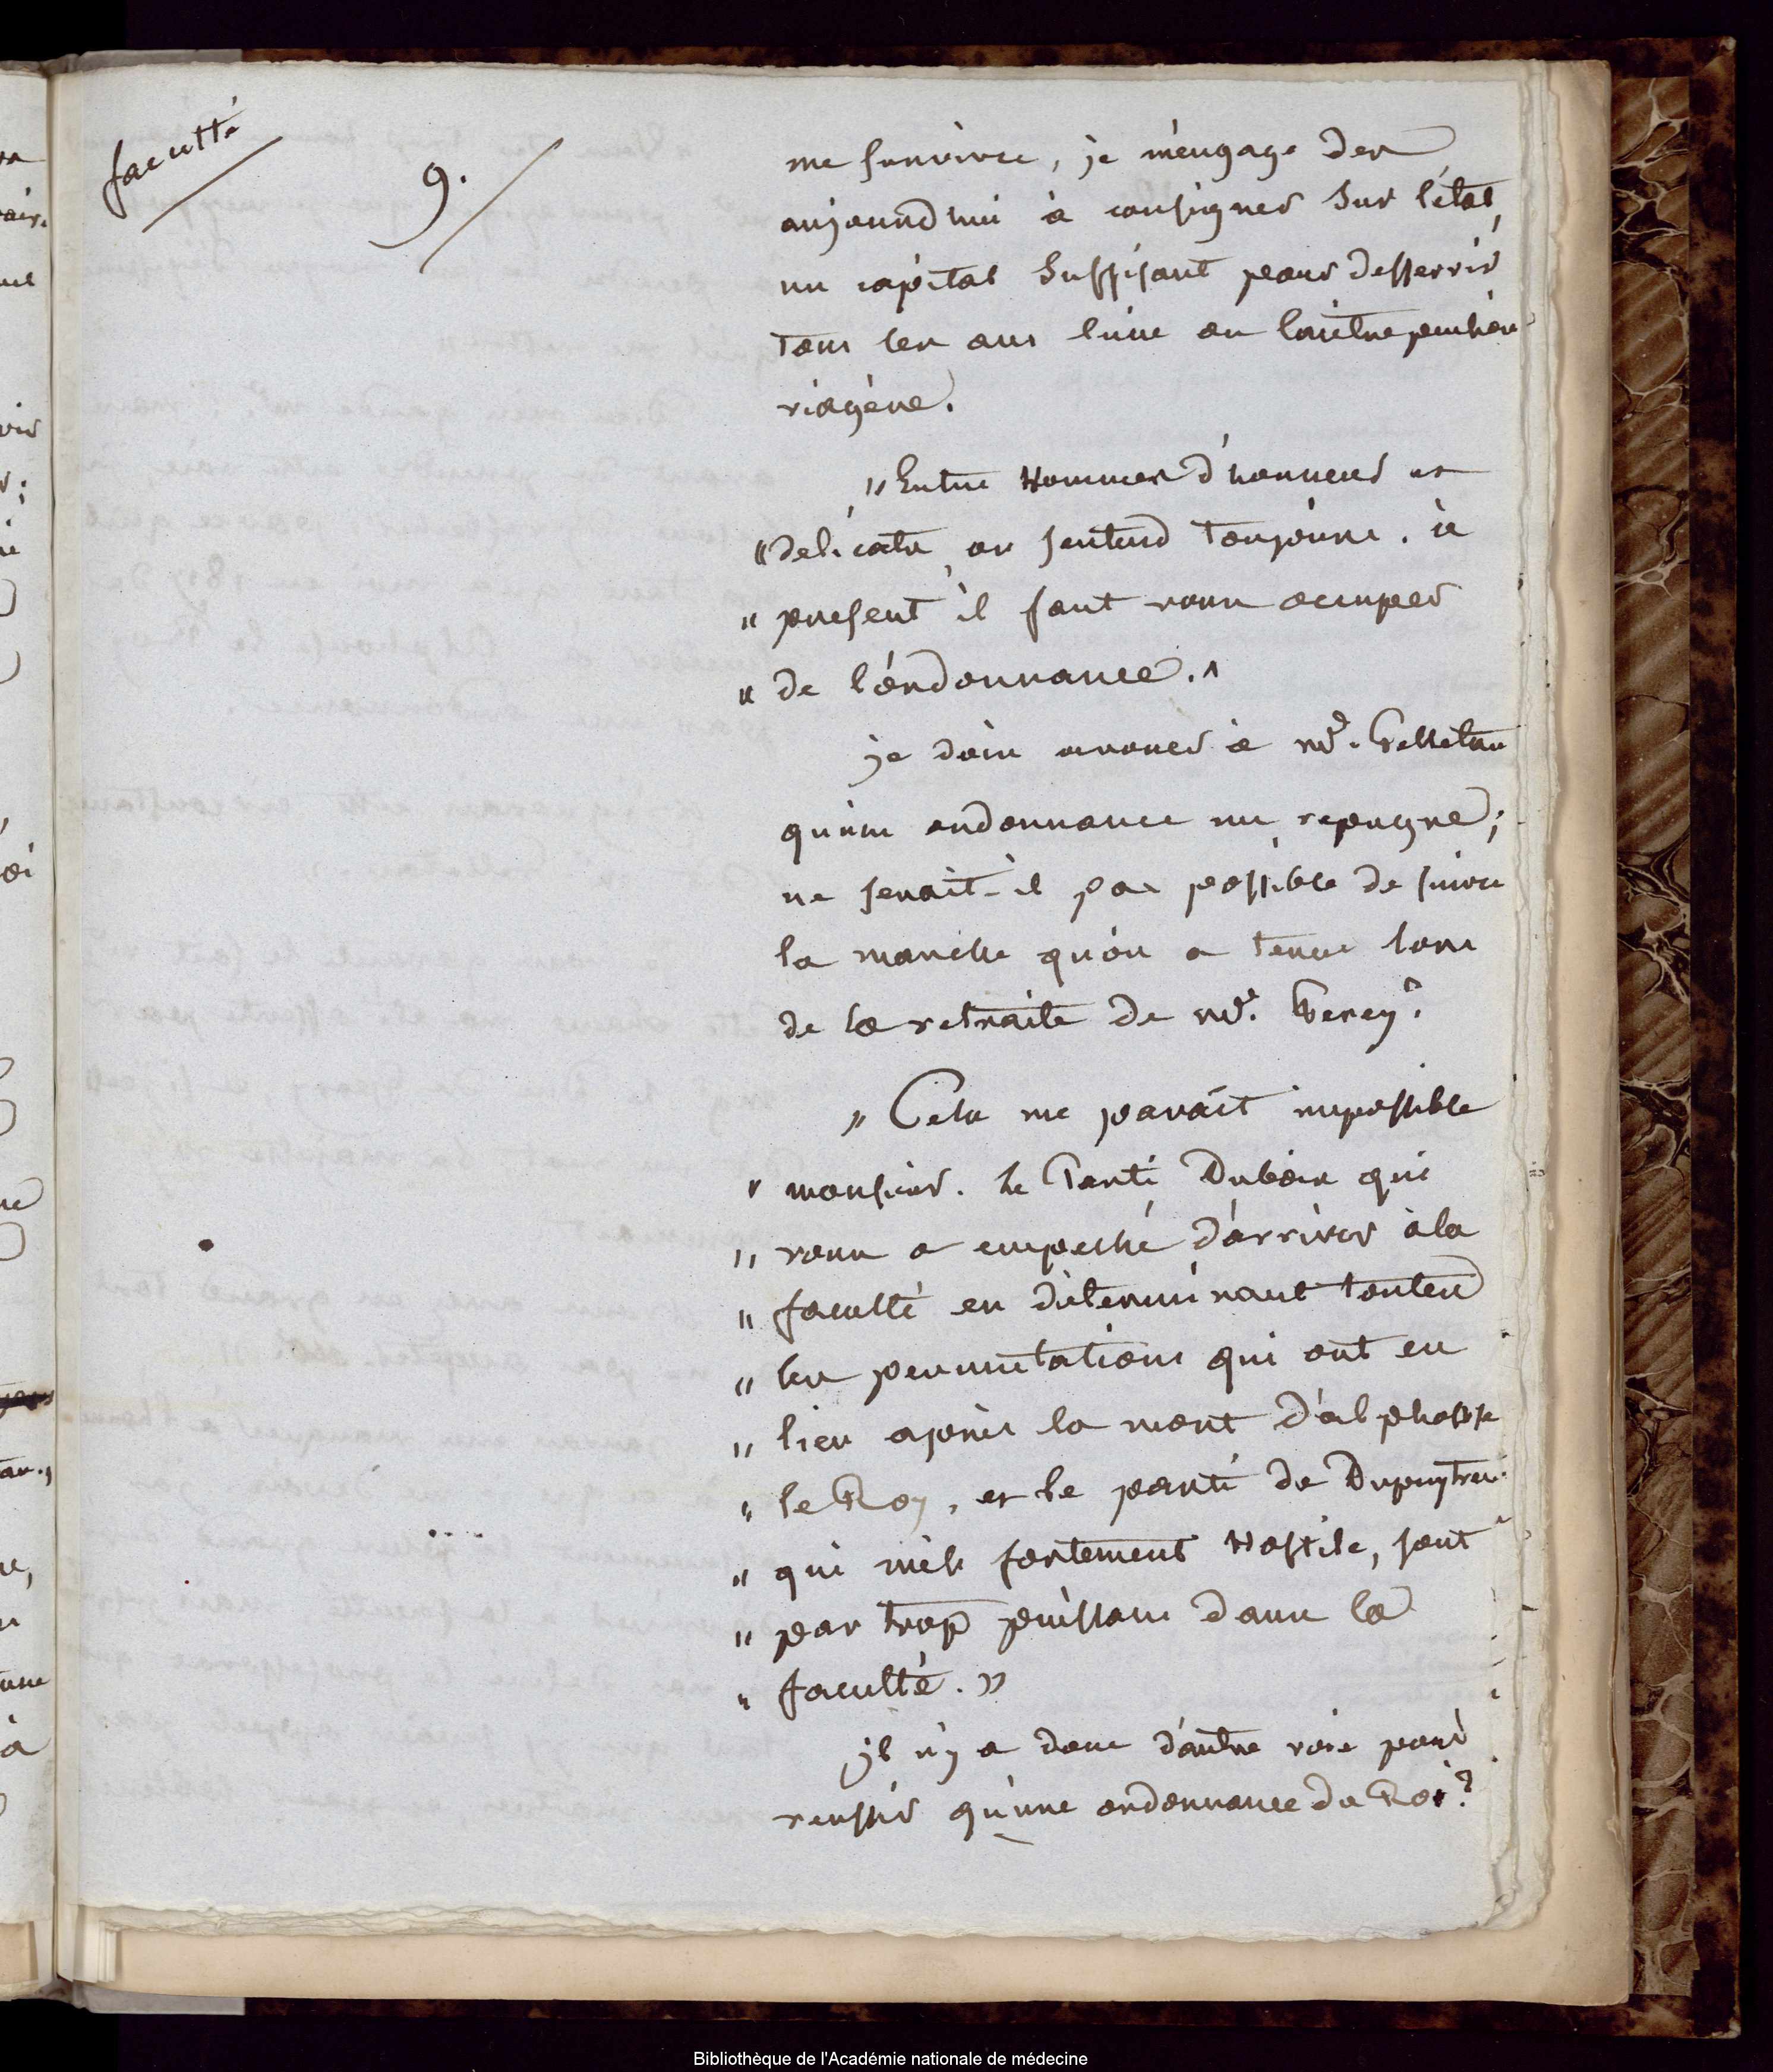 faculté
9.
me survivre, je m'engage des
aujourd'hui à consigner sur l'état
un capital suffisant pour desservir
tous les ans l'une ou l'autre pension
viagère.
" Entre Hommes d'honneur et
" delicats on s'entend toujours. à
" present il faut vous occuper
" de l'ordonnance. "
je dois avouer à mr. Pelletan
qu'une ordonnance me repugne;
ne serait-il pas possible de suivre
la marche qu'on a tenue lors
de la retraite de mr. Percy?
" Cela me parait impossible
" monsieur. le Parti Dubois qui
" vous a empeché d'arriver à la
" faculté en déterminant toutes
" les permutations qui ont eu
" lieu après la mort d'alphonse
" le Roy, et le parti de Dupuytren
" qui m'est fortement Hostile, sont
" par trop puissans dans la
" faculté. "
il n'y a donc d'autre voie pour
reussir qu'une ordonnance du Roi?
Bibliothèque de l'Académie nationale de médecine